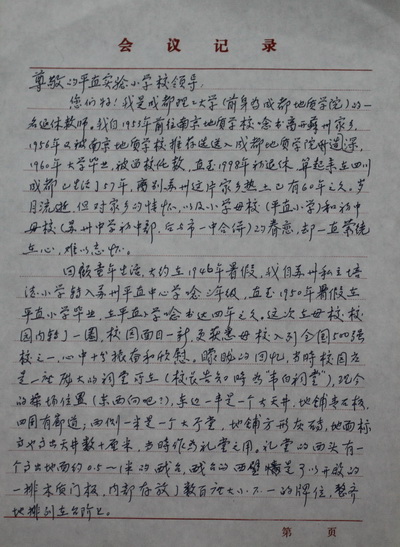 会议记录
尊敬的平直实验小学校领导：
您们好！我是成都理工大学（前身为成都地质学院）的一
名退休教师。我自1953年前往南京地质学校念书离开苏州家乡，
1956年又被南京地质学校推荐选送入成都地质学院再深造，
1960年大学毕业，被留校任教，直至1998年初退休。算起来在四川
成都已生活了57年，离别苏州这片家乡热土已有60年之久。岁
月流逝，但对家乡的情怀，以及小学母校（平直小学）和初中
母校（苏州中学初中部，后与市一中合併）的眷恋，却一直萦绕
在心，难以忘怀。
回顾童年生活，大约在1946年暑假，我自苏州私立培
德小学转入苏州平直中心学唸三年级，直至1950年暑假在
平直小学毕业，在平直小学唸书达四年之久。这次在母校校
园内转了一圈，校园面目一新，更获悉母校入列全国500强
校之一，心中十分振奋和欣慰。朦胧的回忆，当时校园应
是一班 庞大的祠堂所在（校长告知时为“韦白祠堂”），现今
的操场位置（东西向吧？），东边一半是一个大天井，地铺长石板，
四周有廊道；西侧一半是一个大厅堂，地铺方形灰砖，地面标
高也高出天井数十厘米，当时作为礼堂之用。礼堂的西头有一
个高出地面约0.5～1米的戏台，戏台的西壁幡是可以开啟的
一排木质门板，内部存放了数百块大小不一的牌位，整齐
地排列在台阶上。
第 页